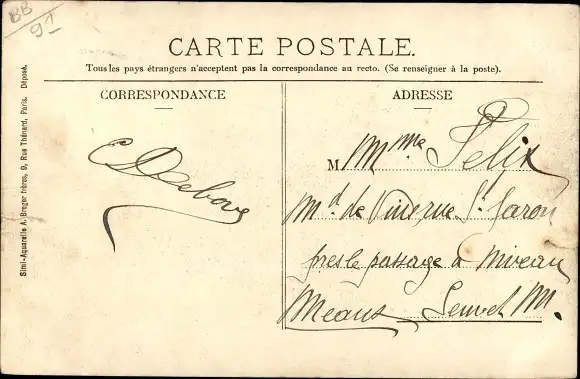 BB
91
CARTE POSTALE.
Tous les pays étrangers n'acceptent pas la correspondance au recto. (Se renseigner à la poste).
CORRESPONDANCE
ADRESSE
C Delebove
M Mme Felix
Md. de Vin rue St. Faron
pres le passage à niveau
Meaux Seine et M.
Simi-Aquarelle A. Breger frères, 9, Rue Thénard, Paris. Déposé.